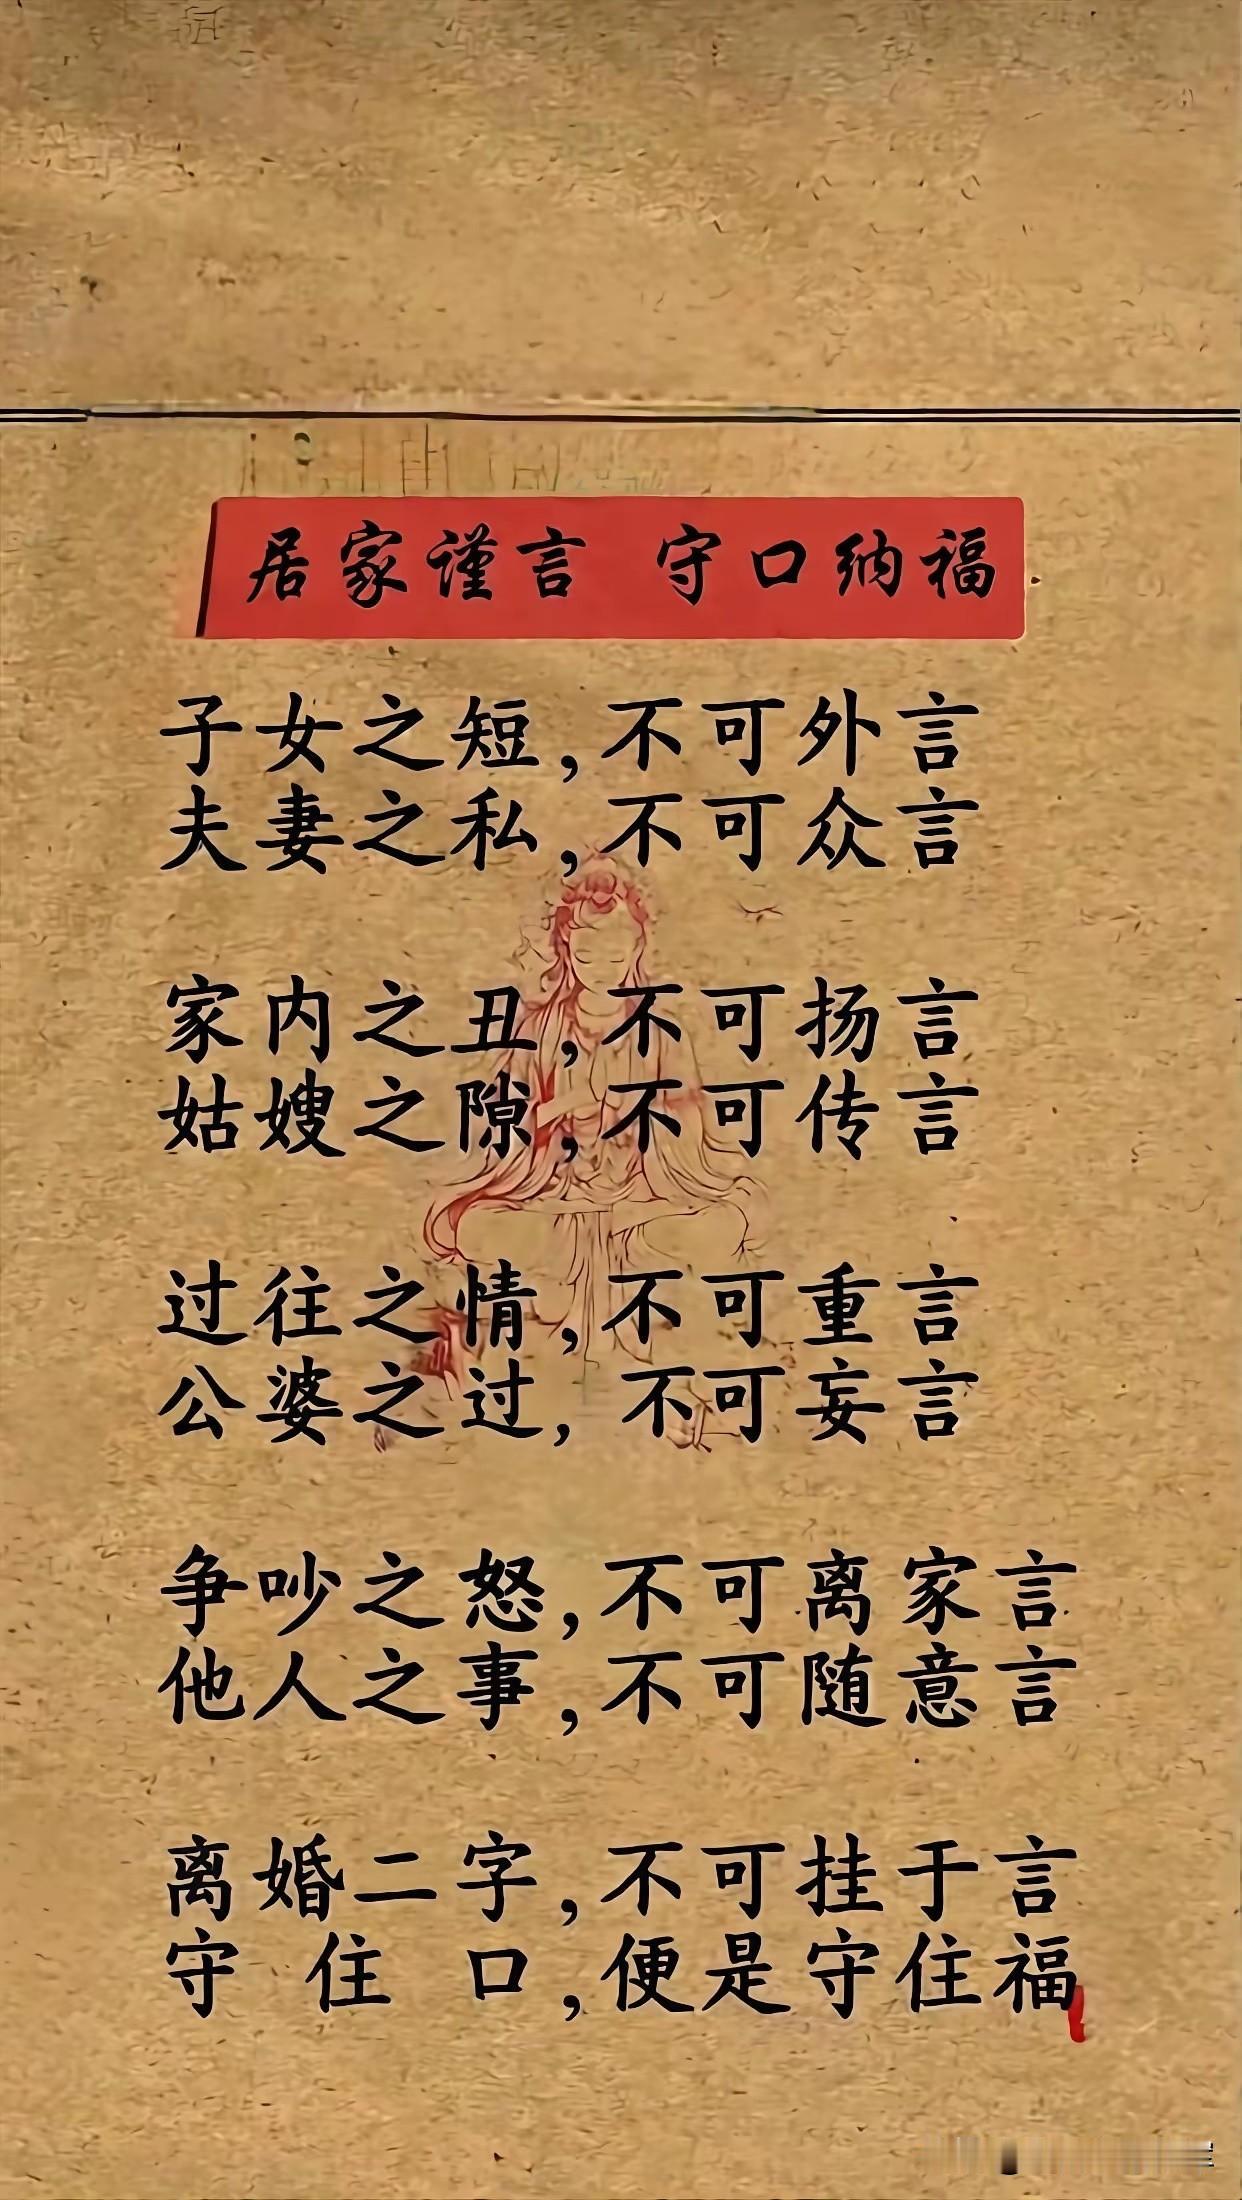 居家谨言 守口纳福
子女之短,不可外言
夫妻之私,不可众言
家内之丑,不可扬言
姑嫂之隙,不可传言
过往之情,不可重言
公婆之过,不可妄言
争吵之怒,不可离家言
他人之事,不可随意言
离婚二字,不可挂于言
守住口,便是守住福